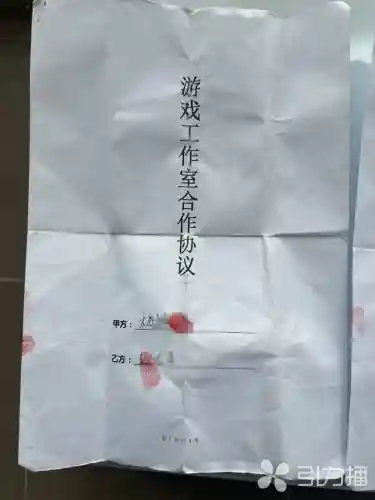 游戏工作室合作协议
甲方：
乙方：
引力播